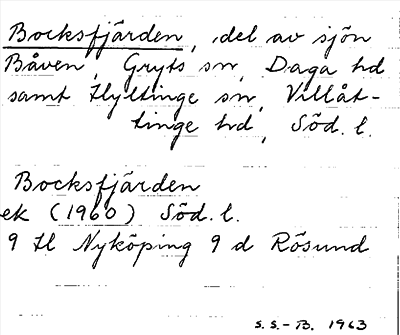 Bocksfjärden, del av sjön
Båven, Gryts sn, Daga hd
samt Hyltinge sn, Villåt-
tinge hd, Söd. l.
Bocksfjärden
ek (1960) Söd. l.
9 H Nyköping 9 d Rösund
S.S.-B. 1963